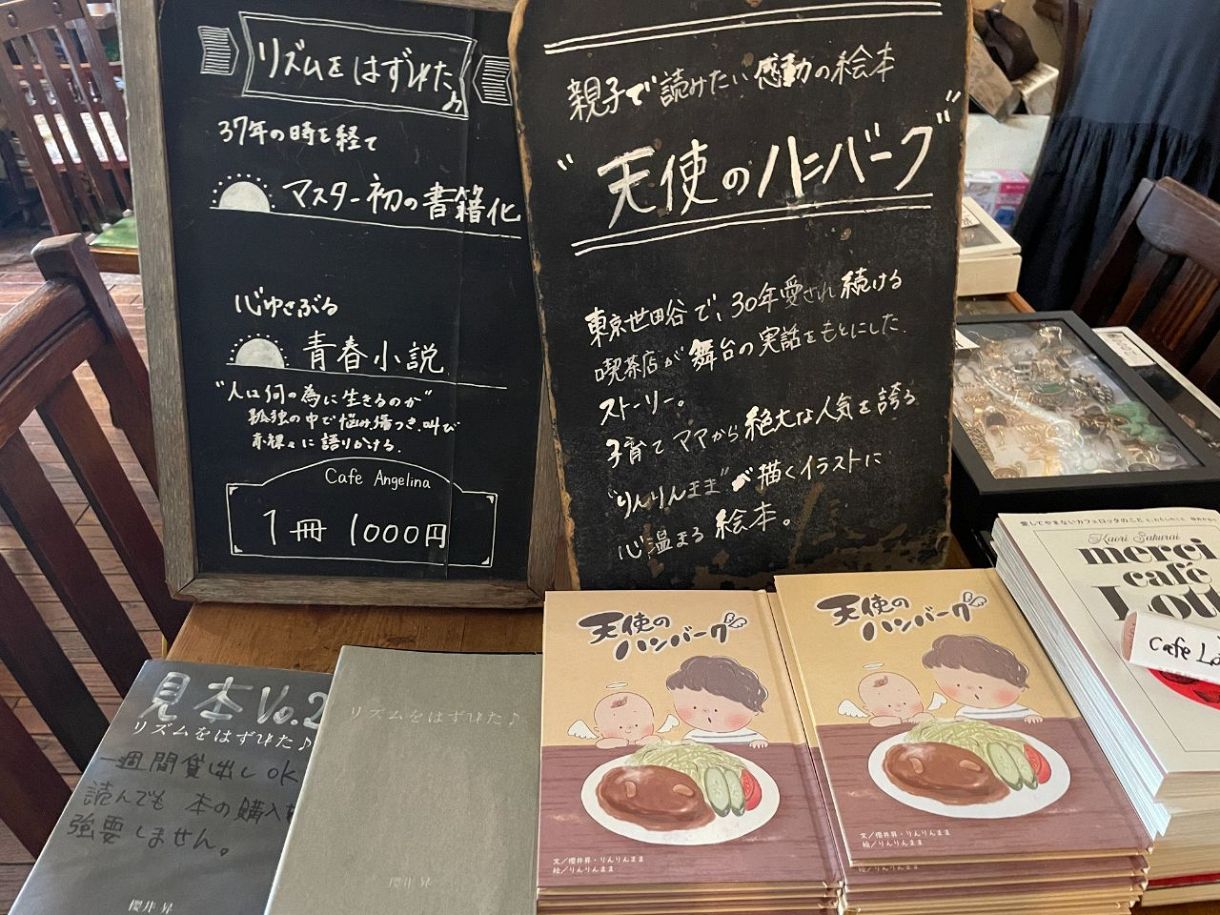 リズムをはずれた♪
37年の時を経て
マスター初の書籍化
心ゆさぶる
青春小説
"人は何の為に生きるのか"
孤独の中で悩み傷つき、叫び
赤裸々に語りかける。
Cafe Angelina
1冊 1000円
親子で読みたい感動の絵本
"天使のハンバーグ"
東京世田谷で、30年愛され続ける
喫茶店が舞台の実話をもとにした
ストーリー。
子育てママから絶大な人気を誇る
"りんりんまま"が描くイラストに
心温まる絵本。
見本 Vo.2
リズムをはずれた♪
一週間貸出しOK
読んでも 本の購入
強要しません。
櫻井 昇
リズムをはずれた♪
櫻井 昇
天使の
ハンバーグ
文/櫻井昇・りんりんまま
絵/りんりんまま
天使の
ハンバーグ
文/櫻井昇・りんりんまま
絵/りんりんまま
愛してやまないカフェロッタのこと
Kaori Sakurai
merci
café
Lott
Cafe Lo